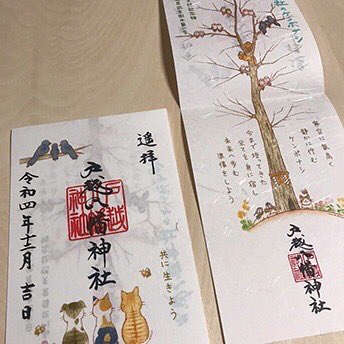 遥拝
戸越八幡神社
戸越
神社
令和四年十二月吉日
共に生きよう
社のケンポナシ
寒空に気高く
静かに佇む
ケンポナシ
今まで培ってきた
全てを身に宿し
未来へ歩む
準備をしよう
戸越八幡神社